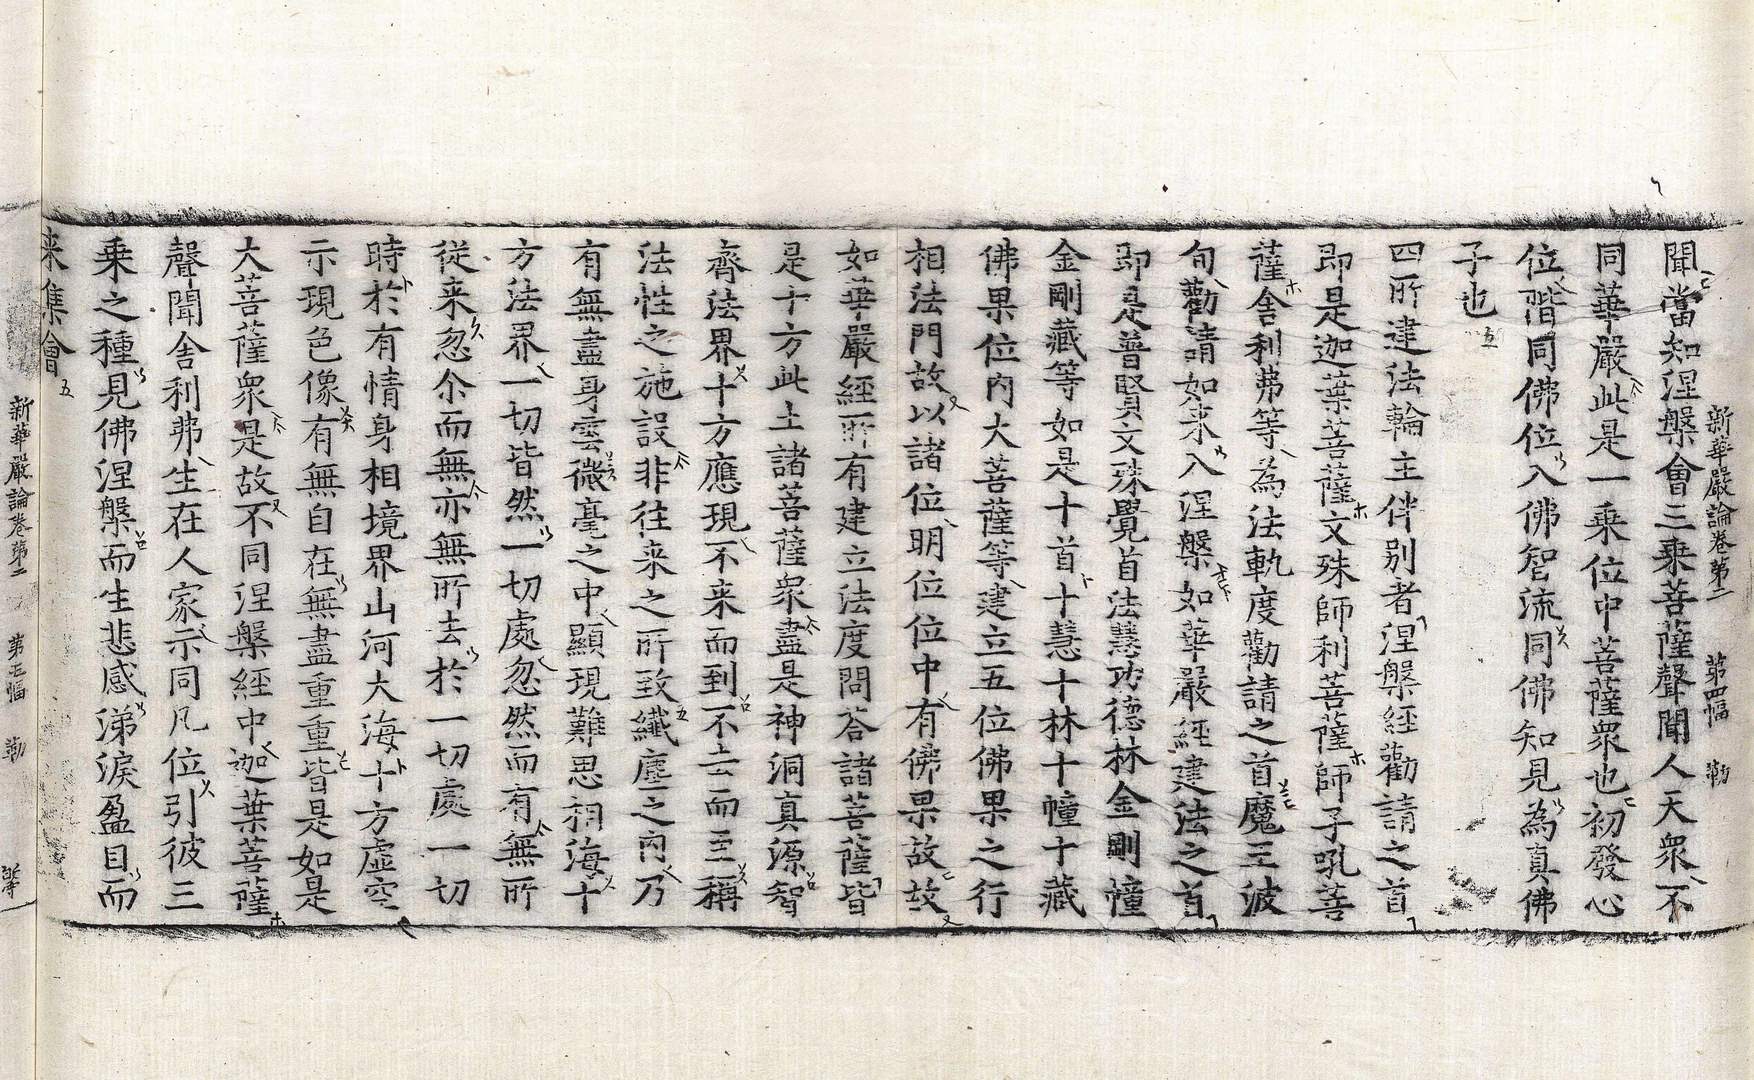 新華嚴論卷第二 第四幅 勒
聞當知涅槃會三乗菩薩聲聞人天衆不
同華嚴此是一乗位中菩薩衆也初發心
位階同佛位入佛智流同佛知見為真佛
子也
四所建法輪主伴别者涅槃經勸請之首
即是迦葉菩薩文殊師利菩薩師子吼菩
薩舎利弗等為法軌度勸請之首魔王波
旬勸請如来入涅槃如華嚴經建法之首
即是普賢文殊覺首法慧功德林金剛幢
金剛藏等如是十首十慧十林十幢十藏
佛果位内大菩薩等建立五位佛果之行
相法門故以諸位明位位中有佛果故故
如華嚴經所有建立法度問荅諸菩薩皆
是十方此土諸菩薩衆盡是神洞真源智
齊法界十方應現不来而到不去而至稱
法性之施設非往来之所致纎塵之内乃
有無盡身雲微毫之中顯現難思相海十
方法界一切皆然一切處忽然而有無所
從来忽尒而無亦無所去於一切處一切
時於有情身相境界山河大海十方虚空
示現色像有無自在無盡重重皆是如是
大菩薩衆是故不同涅槃經中迦葉菩薩
聲聞舎利弗生在人家示同凡位引彼三
乗之種見佛涅槃而生悲感涕淚盈目而
来集會
新華嚴論卷第二 第五幅 勒